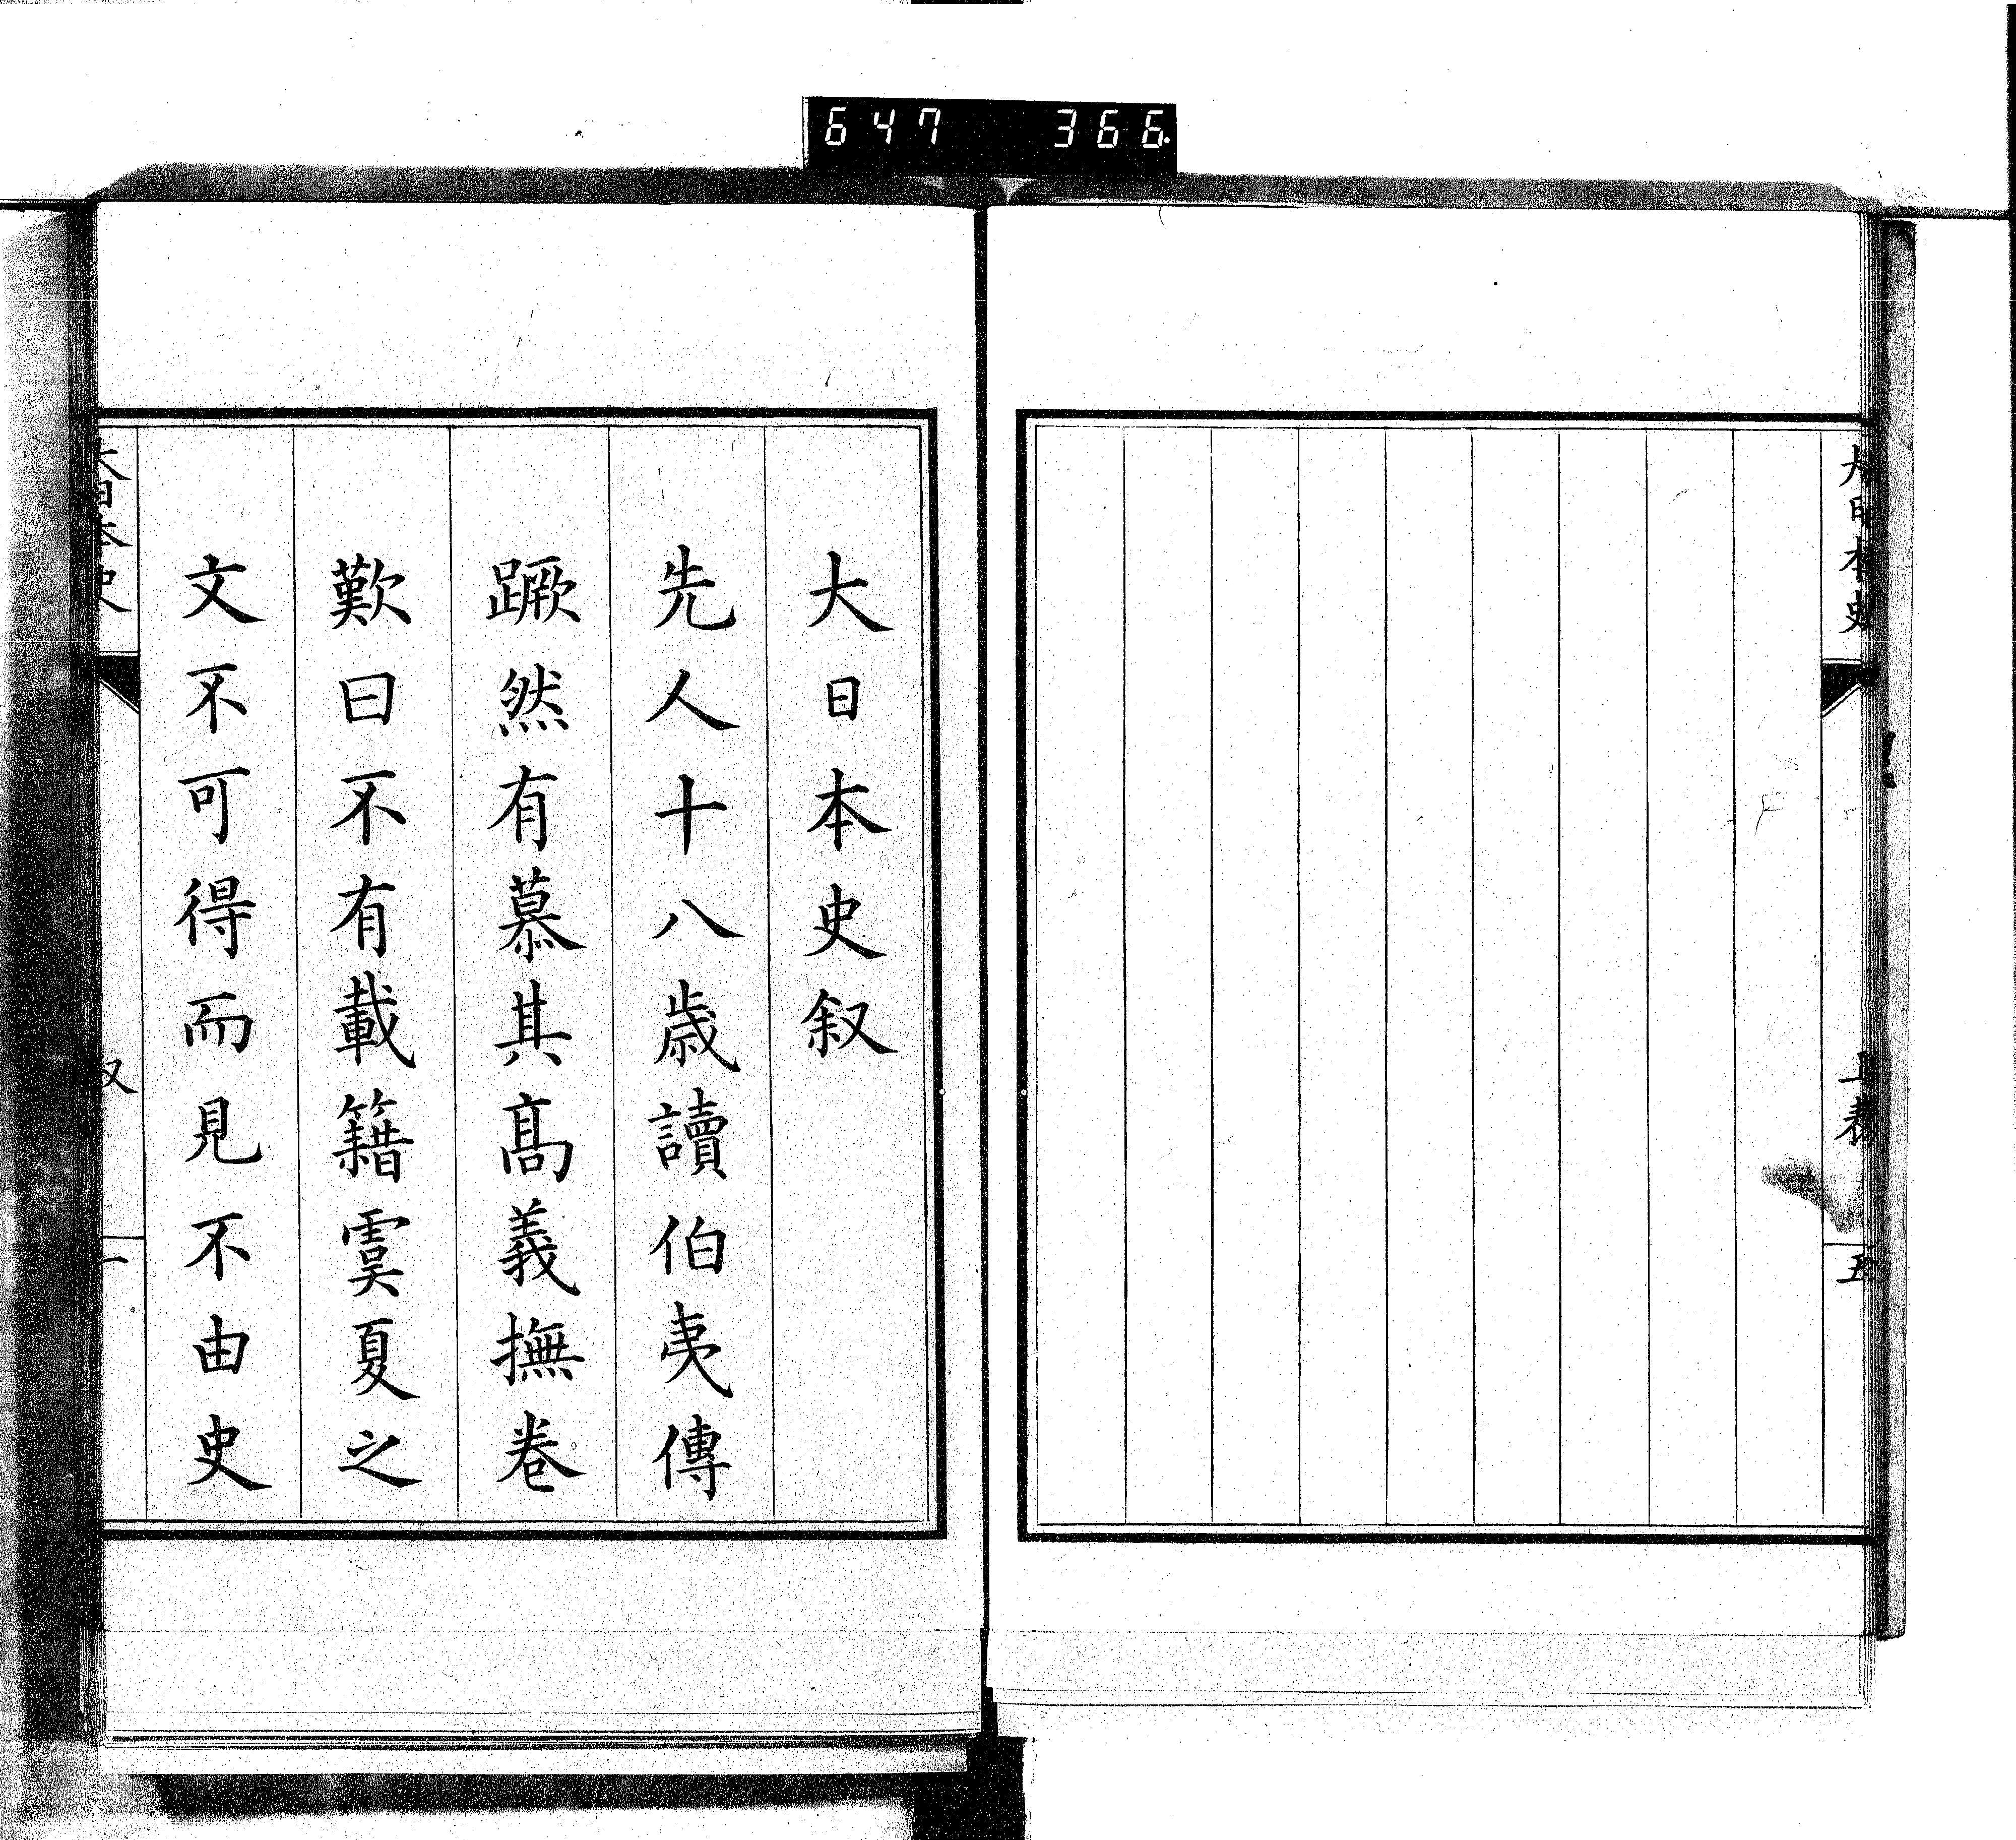 647 366
大日本史
上表
五
大日本史叙
先人十八歳讀伯夷傳
蹶然有慕其高義撫卷
歎曰不有載籍虞夏之
文不可得而見不由史
大日本史
叙
一